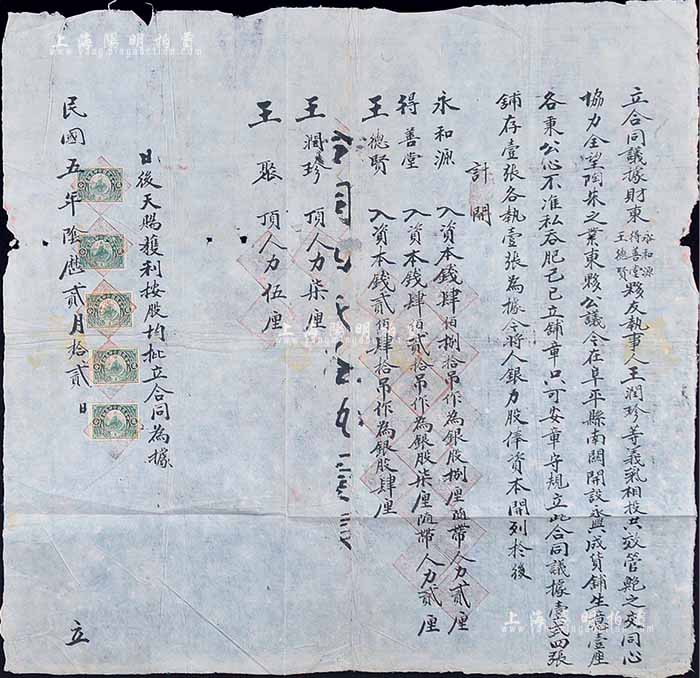 立合同議據財東永和源得善堂王德賢夥友執事人王潤珍等義氣相投共效管鮑之交同心
協力全望陶朱之業東夥公議今在阜平縣南關開設盛成貨鋪生意壹座
各東公心不准私吞肥己已立鋪章只可安章守規立此合同議據壹式四張
鋪存壹張各執壹張為據今將人銀力股俸資本開列於後
計開
永和源 入資本錢肆佰捌拾吊作為銀股捌厘隨帶人力貳厘
得善堂 入資本錢肆佰貳拾吊作為銀股柒厘隨帶人力貳厘
王德賢 入資本錢貳佰肆拾吊作為銀股肆厘
王潤珍 頂人力柒厘
王聚 頂人力伍厘
日後天賜獲利按股均批立合同為據
民國五年陰曆貳月拾貳日 立
上海陽明拍賣